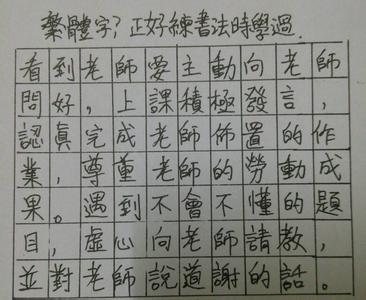 繁體字?正好練書法時學過.
看到老師要主動向老師
問好,上課積極發言,
認真完成老師佈置的作
業,尊重老師的勞動成
果。遇到不會不懂的題
目,虛心向老師請教,
並對老師說道謝的話。